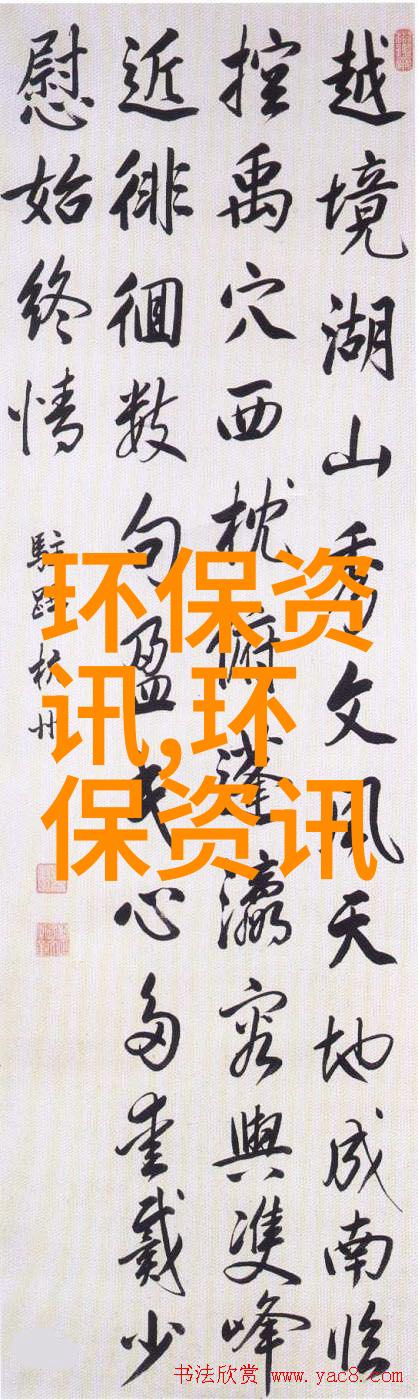 越境湖山秀文風天地成南臨
控禹穴西枕俯蓬瀛容與雙峰
近徘徊數句盈民心多愛戴少
慰始終情
駐蹕杭州
环保资
讯,环
保资讯
书法欣赏 www.yac8.com